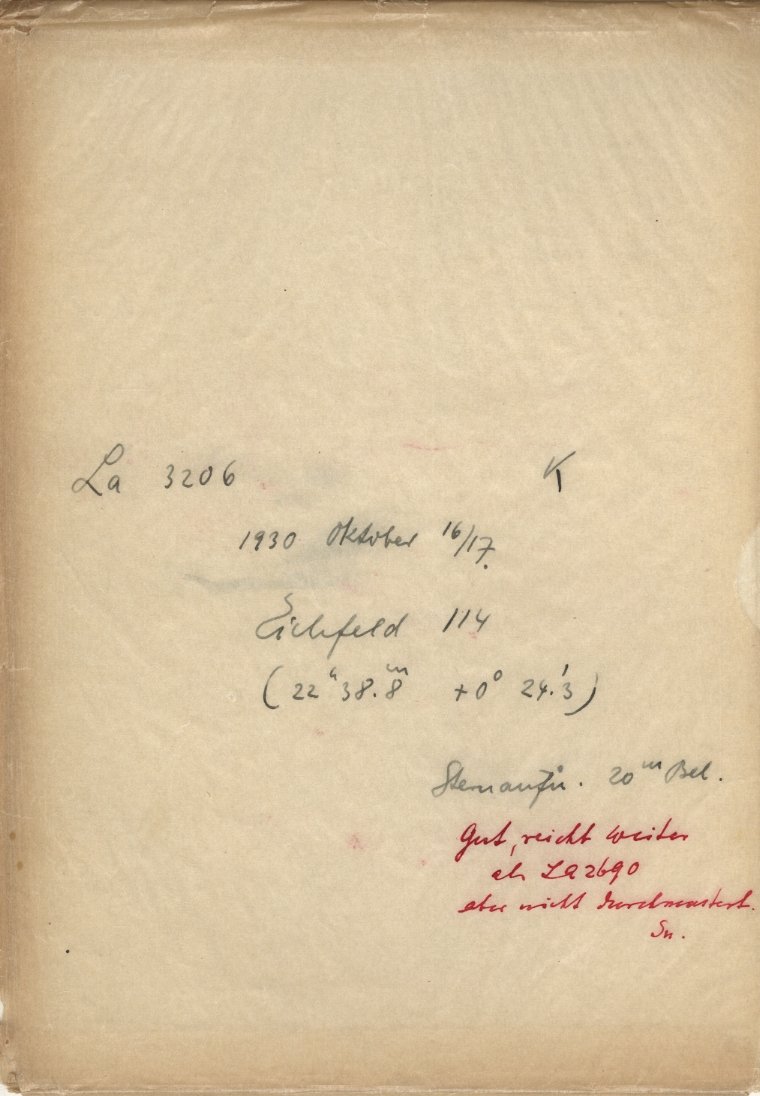 La 3206 K
1930 Oktober 16/17.
Eichfeld 114
(22ʰ38.8ᵐ +0° 24.3')
Sternaufn. 20ᵐ Bel.
Gut, reicht weiter
als La 2690
aber nicht durchmustert.
Sn.